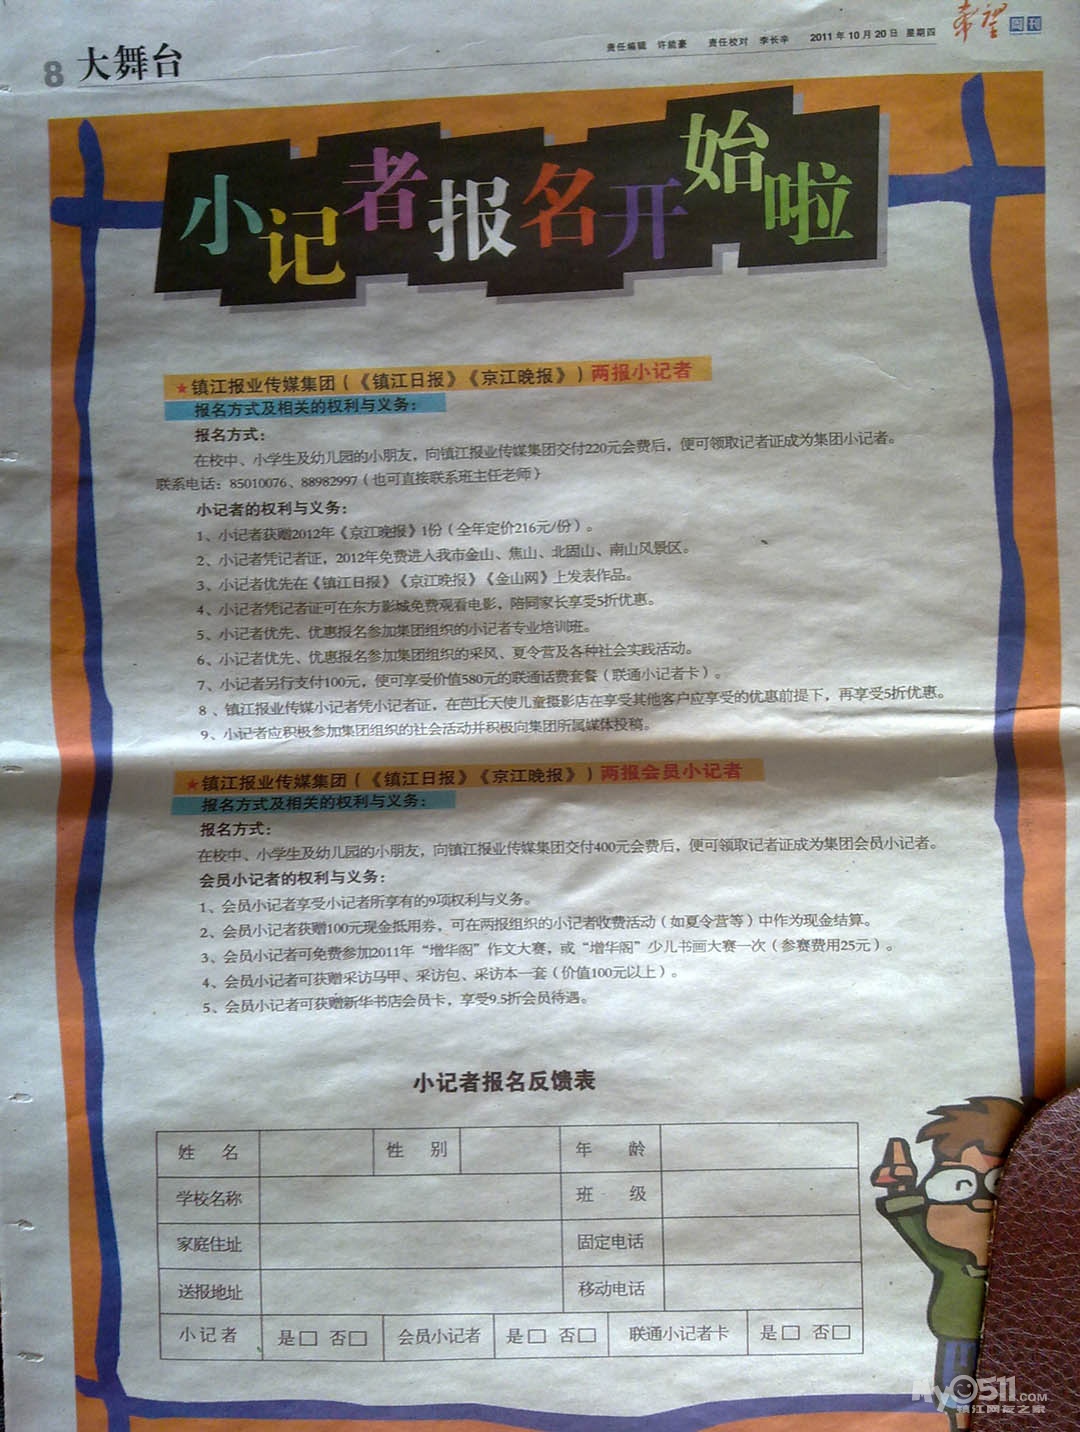 8 大舞台
责任编辑 许能豪 责任校对 李长辛 2011年10月20日 星期四
希望周刊
小记者报名开始啦
★镇江报业传媒集团(《镇江日报》《京江晚报》)两报小记者
报名方式及相关的权利与义务:
报名方式:
在校中、小学生及幼儿园的小朋友,向镇江报业传媒集团交付220元会费后,便可领取记者证成为集团小记者。
联系电话:85010076、88982997(也可直接联系班主任老师)
小记者的权利与义务:
1、小记者获赠2012年《京江晚报》1份(全年定价216元/份)。
2、小记者凭记者证,2012年免费进入我市金山、焦山、北固山、南山风景区。
3、小记者优先在《镇江日报》《京江晚报》《金山网》上发表作品。
4、小记者凭记者证可在东方影城免费观看电影,陪同家长享受5折优惠。
5、小记者优先、优惠报名参加集团组织的小记者专业培训班。
6、小记者优先、优惠报名参加集团组织的采风、夏令营及各种社会实践活动。
7、小记者另行支付100元,便可享受价值580元的联通话费套餐(联通小记者卡)。
8、镇江报业传媒小记者凭小记者证,在芭比天使儿童摄影店在享受其他客户应享受的优惠前提下,再享受5折优惠。
9、小记者应积极参加集团组织的社会活动并积极向集团所属媒体投稿。
★镇江报业传媒集团(《镇江日报》《京江晚报》)两报会员小记者
报名方式及相关的权利与义务:
报名方式:
在校中、小学生及幼儿园的小朋友,向镇江报业传媒集团交付400元会费后,便可领取记者证成为集团会员小记者。
会员小记者的权利与义务:
1、会员小记者享受小记者所享有的9项权利与义务。
2、会员小记者获赠100元现金抵用券,可在两报组织的小记者收费活动(如夏令营等)中作为现金结算。
3、会员小记者可免费参加2011年“增华阁”作文大赛,或“增华阁”少儿书画大赛一次(参赛费用25元)。
4、会员小记者可获赠采访马甲、采访包、采访本一套(价值100元以上)。
5、会员小记者可获赠新华书店会员卡,享受9.5折会员待遇。
小记者报名反馈表
姓 名 性 别 年 龄
学校名称 班 级
家庭住址 固定电话
送报地址 移动电话
小记者 是□ 否□ 会员小记者 是□ 否□ 联通小记者卡 是□ 否□
My0511.COM
镇江网友之家